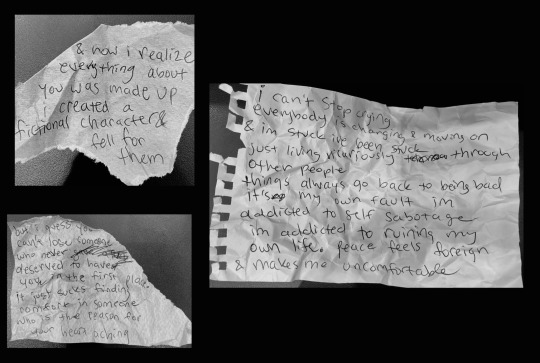 & now i realize
everything about
you was made up
i created a
fictional character &
fell for
them
but i guess you
can't lose someone
who never
deserved to have
you in the first place
it just sucks finding
comfort in someone
who is the reason for
your heart aching
i can't stop crying
everybody is changing & moving on
& im stuck ive been stuck
just living vicariously through
other people
things always go back to being bad
it's my own fault im
addicted to self sabotage
im addicted to ruining my
own life. peace feels foreign
& makes me uncomfortable